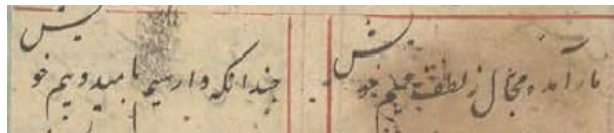 یار آمد و مجال ز لطف عمیم خویش
چندانکه وارسیم بامید و بیم خویش